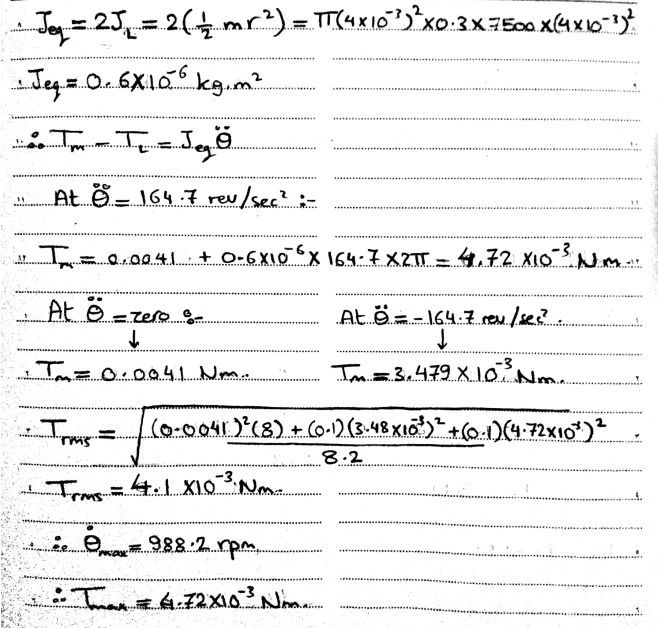 J_eq = 2J_L = 2(½ mr²) = π(4×10⁻³)²×0.3×7500×(4×10⁻³)²
J_eq = 0.6×10⁻⁶ kg.m²
∴ T_m − T_L = J_eq θ̈
At θ̈ = 164.7 rev/sec² :-
T_m = 0.0041 + 0.6×10⁻⁶×164.7×2π = 4.72×10⁻³ Nm.
At θ̈ = zero :- At θ̈ = -164.7 rev/sec².
↓ ↓
T_m = 0.0041 Nm. T_m = 3.479×10⁻³ Nm.
T_rms = √((0.0041)²(8) + (0.1)(3.48×10⁻³)² + (0.1)(4.72×10⁻³)² / 8.2)
T_rms = 4.1×10⁻³ Nm.
∴ θ̇_max = 988.2 rpm.
∴ T_max = 4.72×10⁻³ Nm.